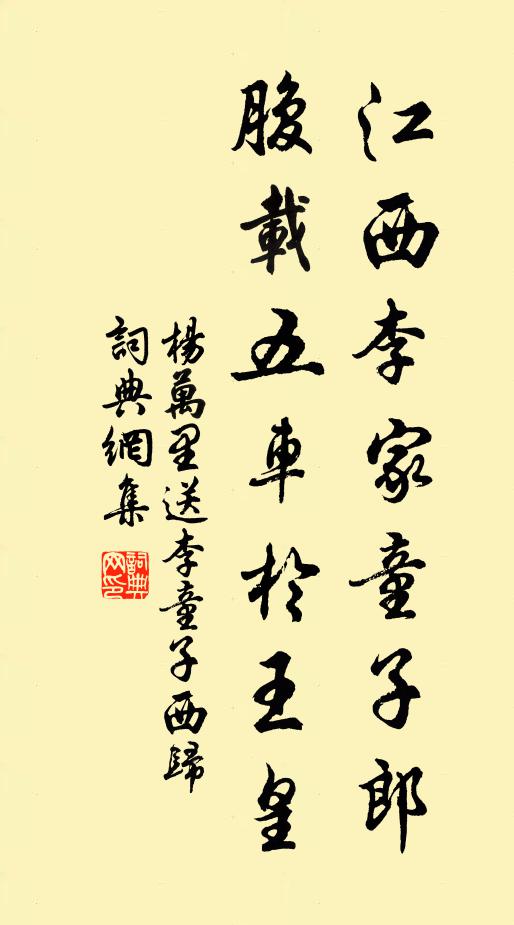 江西李家童子郎
腹載五車於王皇
楊萬里送李童子西歸
詞典網集
詞典
网印